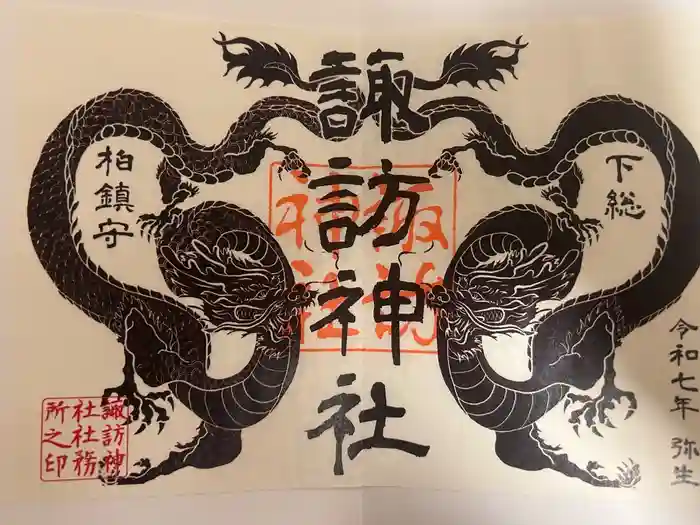 下総
諏訪神社
諏訪
神社
柏鎮守
令和七年 弥生
諏訪神
社社務
所之印